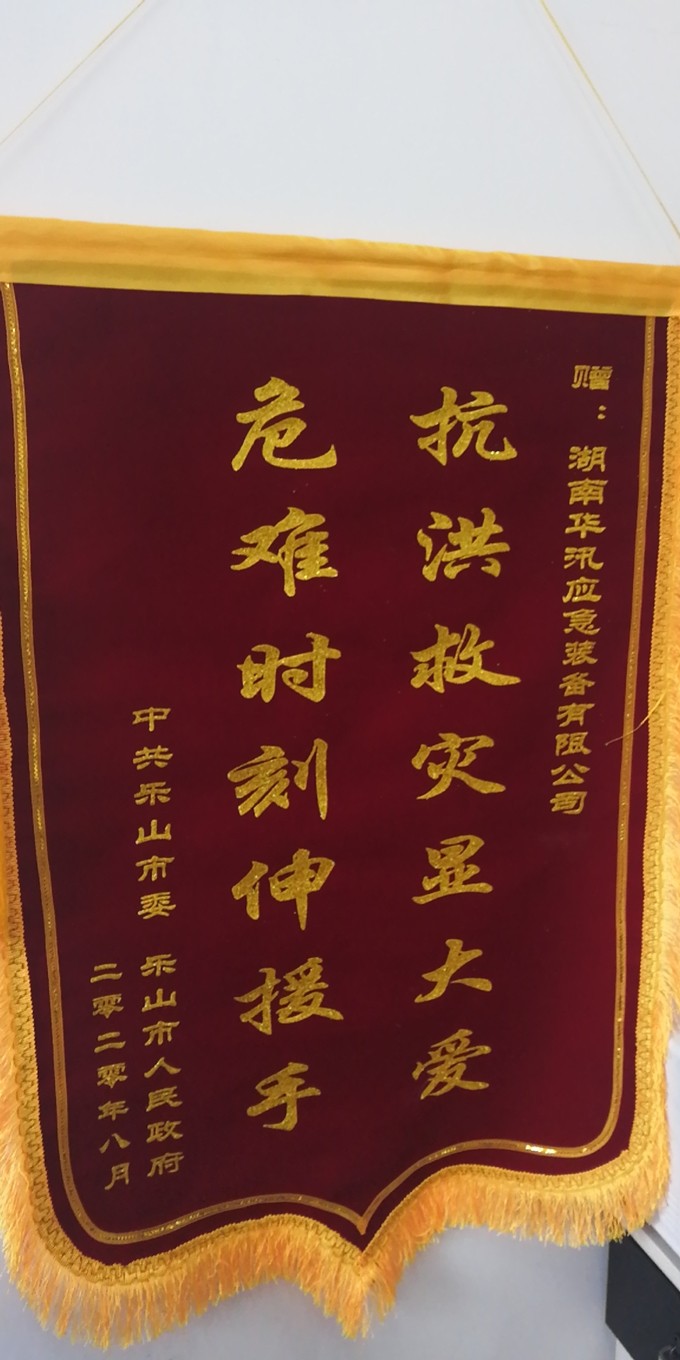 赠：湖南华汛应急装备有限公司
抗洪救灾显大爱
危难时刻伸援手
中共乐山市委 乐山市人民政府
二零二零年八月